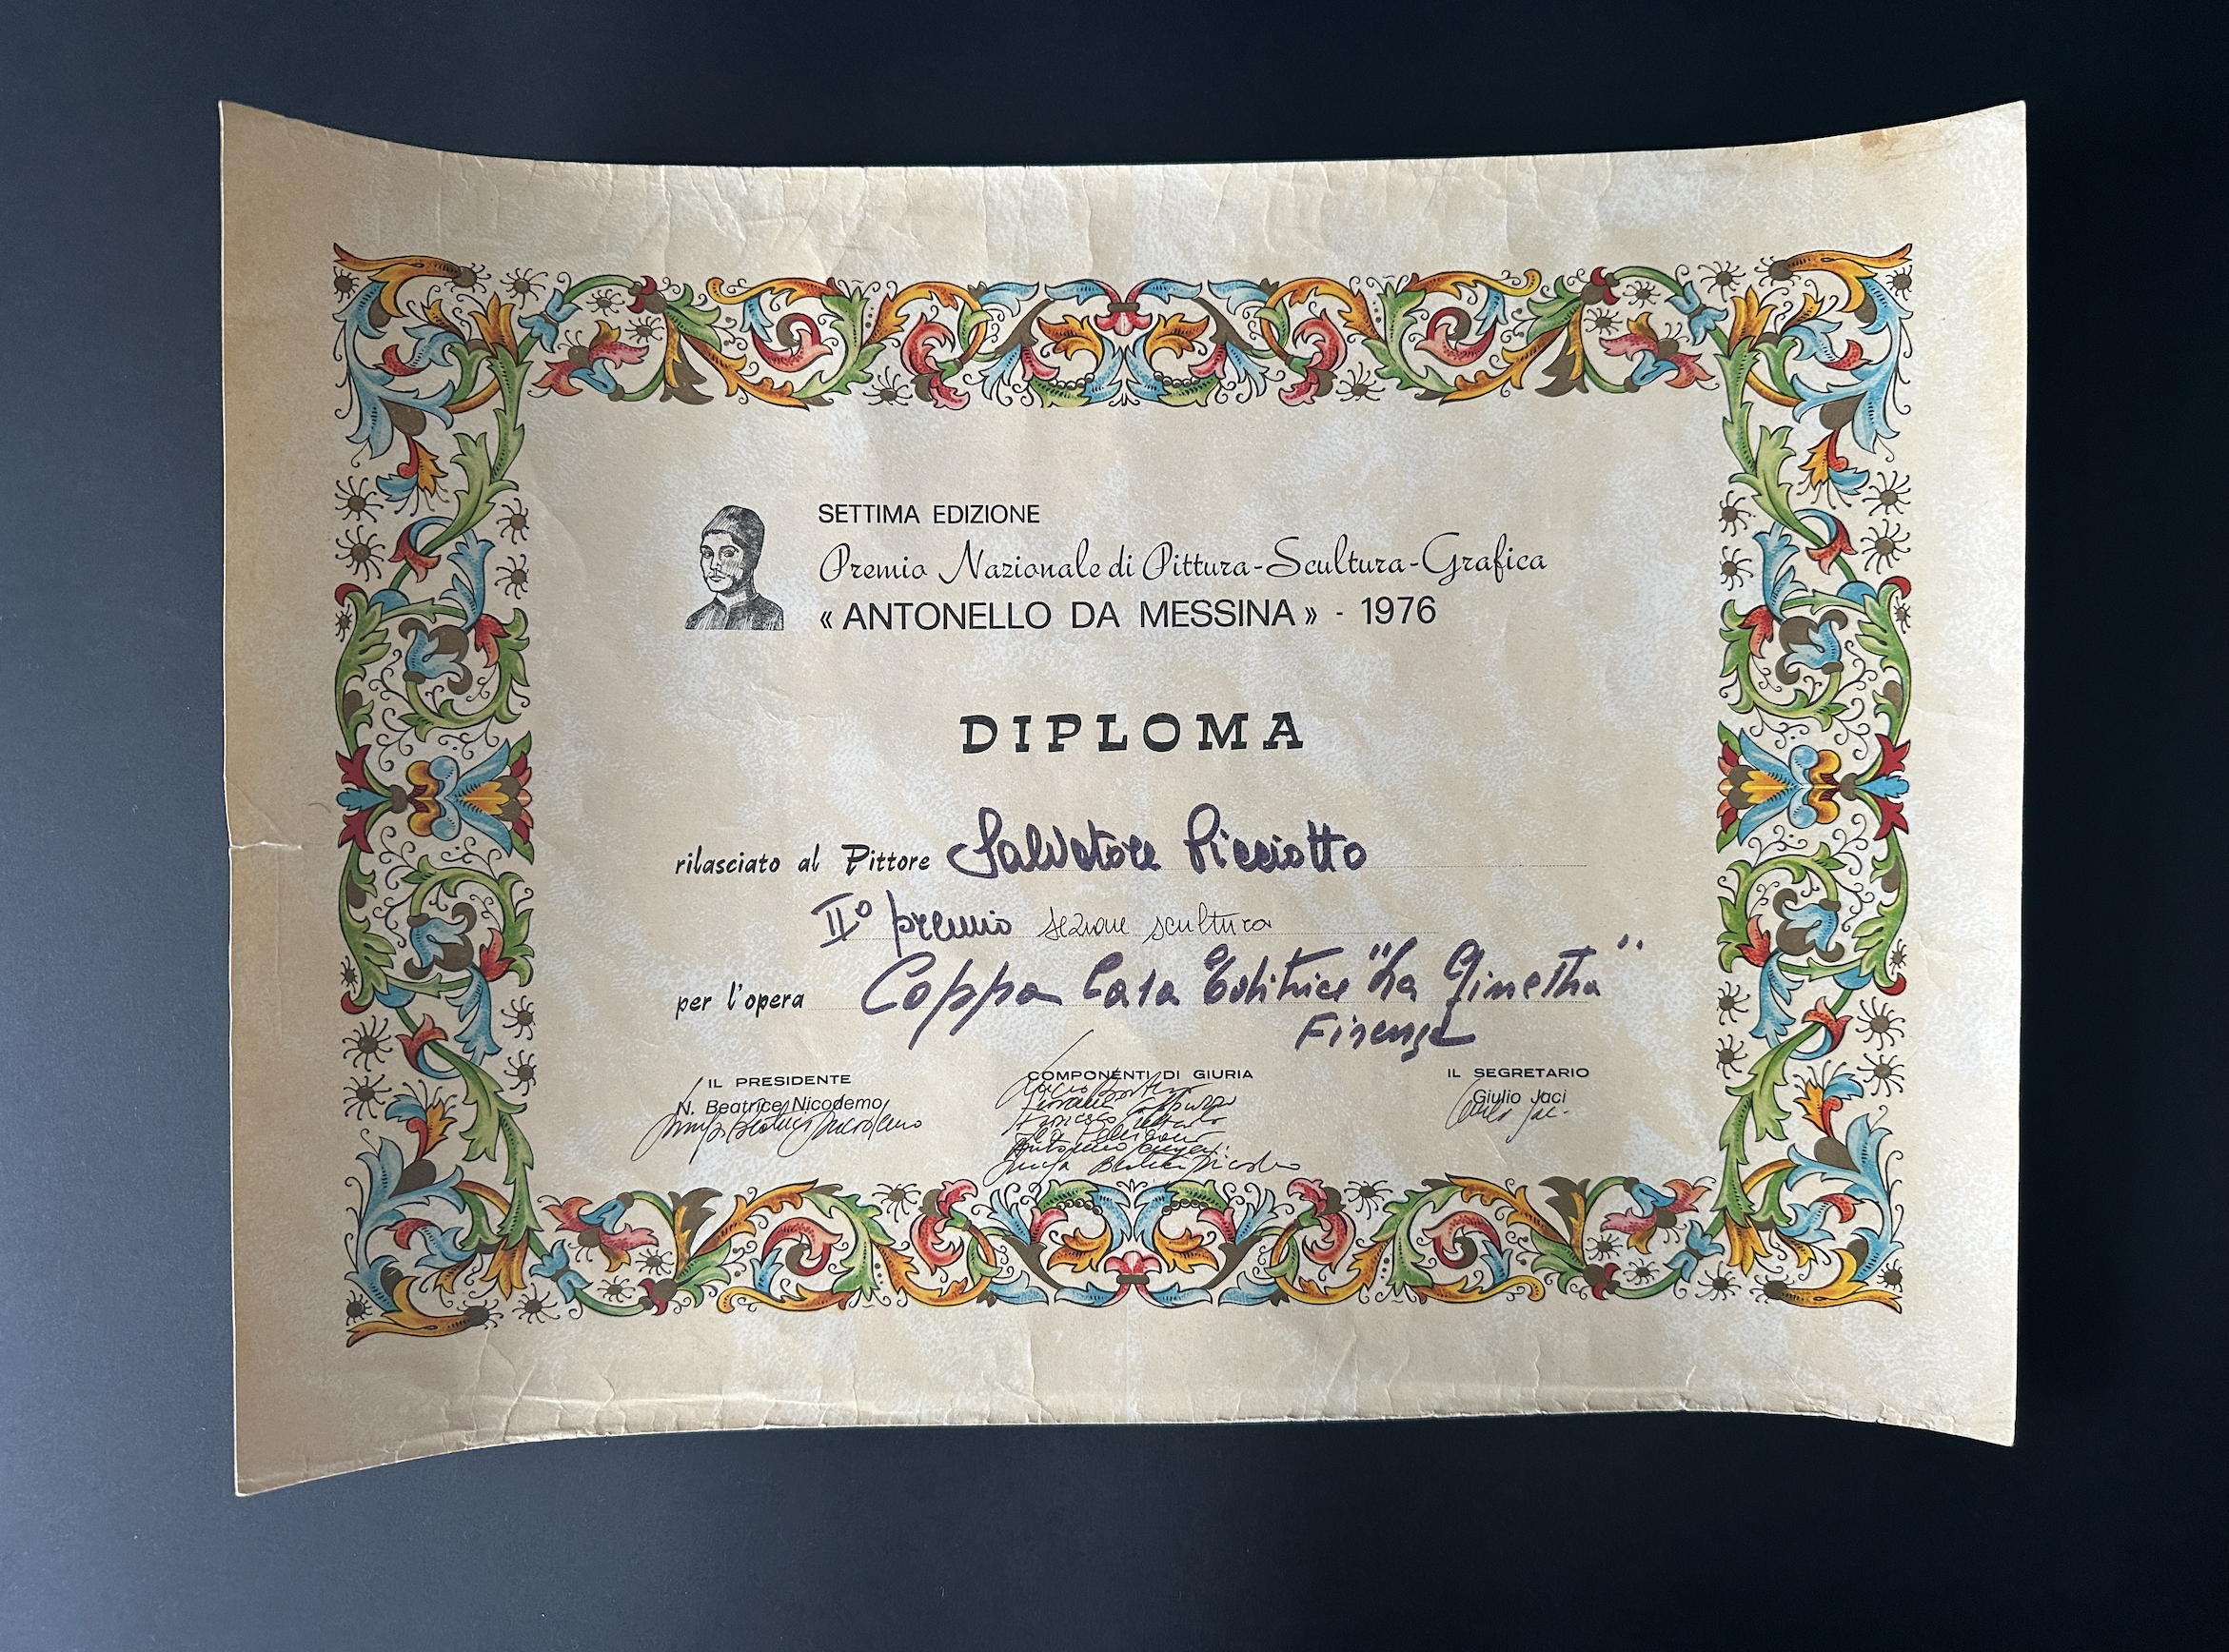 SETTIMA EDIZIONE
Premio Nazionale di Pittura-Scultura-Grafica
« ANTONELLO DA MESSINA » - 1976
DIPLOMA
rilasciato al Pittore Salvatore Picciotto
II° premio sezione scultura
per l'opera Coppa Casa Editrice "La Ginestra"
Firenze
IL PRESIDENTE
N. Beatrice Nicodemo
COMPONENTI DI GIURIA
IL SEGRETARIO
Giulio Jaci